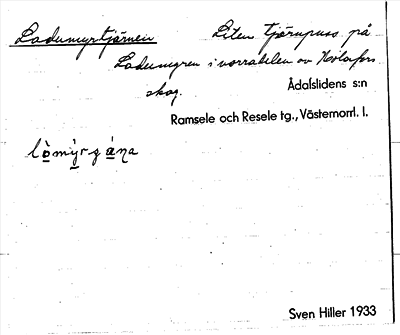 Ladumyrtjärnen
Liten tjärnpuss på
Ladumyren i norradelen av
skog.
Ådalslidens s:n
Ramsele och Resele tg., Västernorrl. l.
Sven Hiller 1933